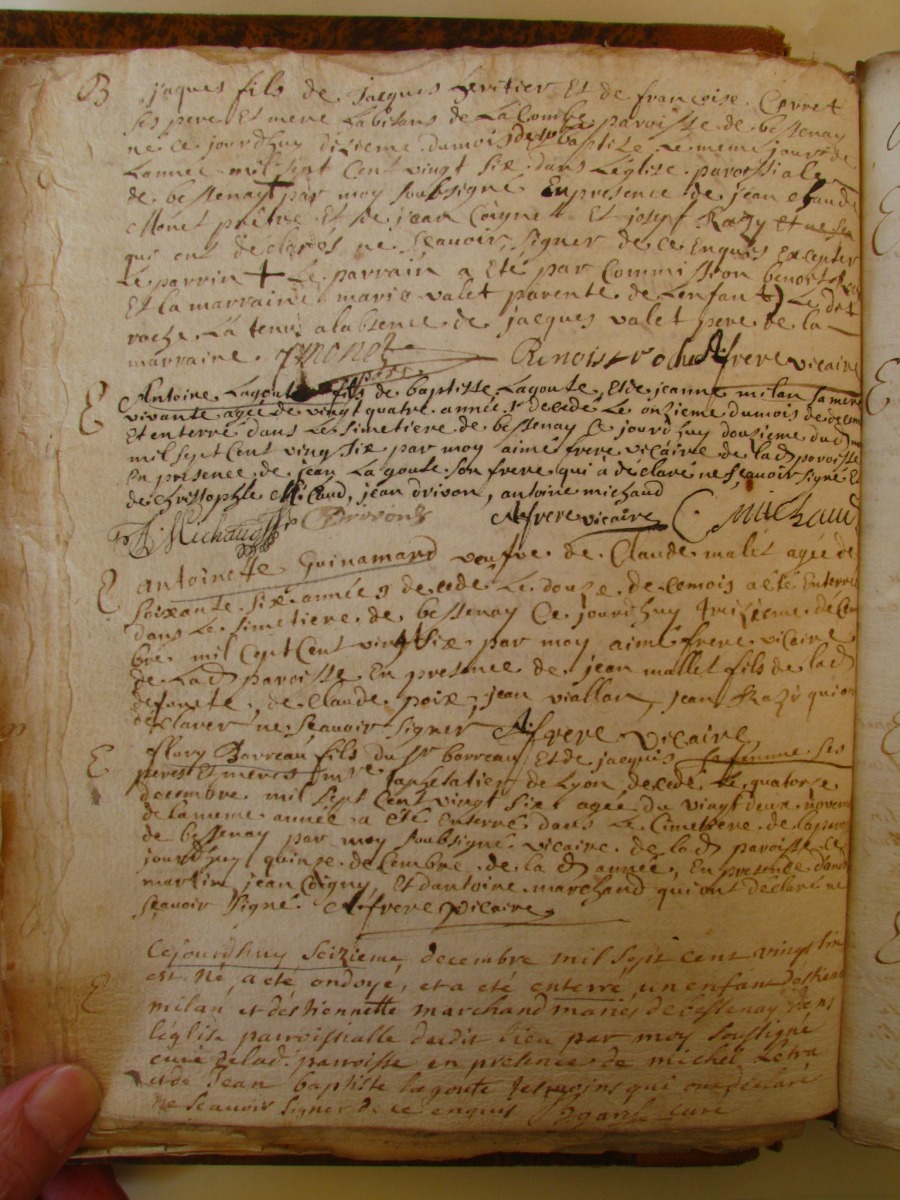 B jaques fils de jacques Leritier Et de francoise Corret
ses pere Et mere habitans de La Combe paroisse de bessenay
ne ce jourdhuy dixieme du mois baptize le meme jour de
Lannee mil sept Cent vingt six dans Leglise paroissiale
de bessenay par moy soubsigné En presence de jean claude
Monet prêtre Et de jean Coigne Et joseph Razy
qui ont declarés ne scauoir signer de ce Enquis Excepter
Le parrin + Le parrain a Eté par Commission benoist
Et la marraine marie valet parente de Lenfant Le dit
roche La tenu a labsence de jacques valet pere de la
marraine. Jmonet ptre Benoist roche A frere vicaire
E Antoine Lagoute fils de baptiste Lagoute, Et de jeanne milan sa mere
vivante agee de vingt quatre années decede Le onzieme du mois de decem
Et enterré dans Le simetiere de bessenay Ce jourdhuy douzieme dud mo
mil sept Cent ving six par moy aimé frere vicaire de lad paroisse
En presence de jean La goute son frere qui à declaré ne scauoir signé Et
de christophle Michaud, jean drivon, antoine michaud
A Michaud Drivond A frere vicaire C. Michaud
E antoinette Guinamard veufve de Claude malet agée de
soixante six années decede Le douze de ce mois a été Enterré
dans Le simetiere de bessenay Ce jourdhuy treizieme decem
bre mil sept Cent vingt six par moy aimé frere vicaire
de Lad paroisse En presence de jean mallet fils de lad
defunte, de Claude poix, jean viallon, jean Razy qui on
declarer ne scauoir signer A frere vicaire
E fleury Borreau fils du Sr borreau Et de jacquis sa femme ses
peres Et meres mre tapissier de Lyon decede Le quatorze
decembre mil sept Cent vingt six agée du vingt deux novem
de la meme année a eté Enterré dans Le Cimetiere de la paroi
de bessenay par moy soubsigné vicaire de lad paroisse Ce
jourdhuy quinze decembre de la d année, En presence
martin jean Coigny, Et dantoine marchand qui ont déclaré ne
scauoir signé. A frere vicaire
E Cejourdhuy seizieme decembre mil sept cent vingt
est né, a eté ondoyé, et a eté enterré, un enfant destienne
milan et destiennette marchand mariés de bessenay dans
léglise parroissialle dudit lieu par moy soussigné
curé de lad. parroisse en presence de michel Létra
et de Jean baptiste lagoute tesmoins qui ont declaré
ne scauoir signer de ce enquis curé